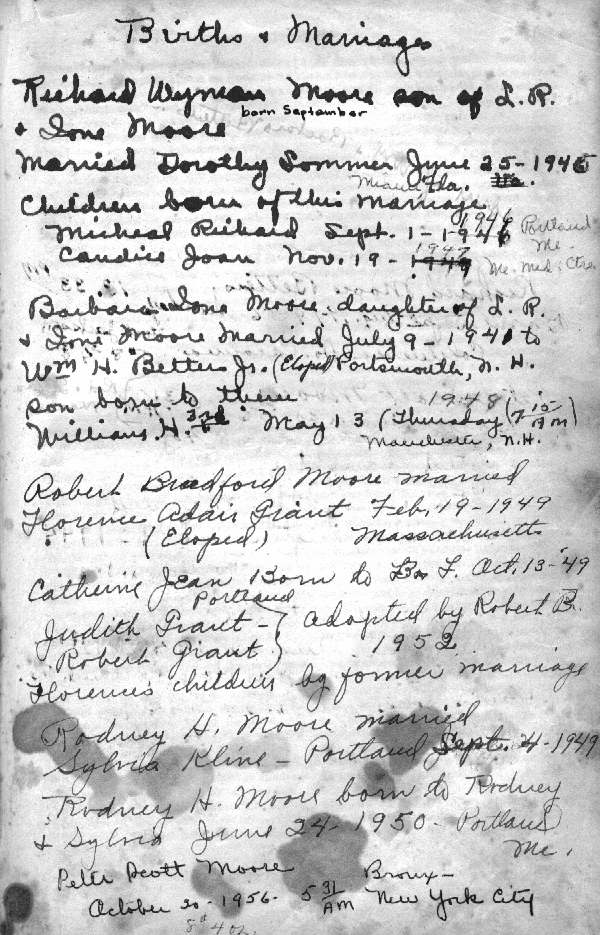 Births & Marriages
Richard Wyman Moore son of L. R.
born September
& Ione Moore
Married Dorothy Sommer June 25 - 1945
Miami Fla.
Children born of this Marriage
Micheal Richard Sept. 1 - 1946 1946 Portland Me.
Candice Joan Nov. 19 - 1947 Me. Med. Ctr.
Barbara Ione Moore daughter of L. R.
& Ione Moore Married July 9 - 1941 to
Wm H. Better Jr. (Eloped Portsmouth, N. H.
son born to them 1948
William H. 3rd May 13 (Thursday (7 15 AM)
Manchester, N.H.
Robert Bradford Moore married
Florence Adair Grant Feb. 19 - 1949
(Eloped) Massachusetts
Catherine Jean Born to F. Oct. 13 - 49
Portland
Judith Grant - } adopted by Robert B.
Robert Grant } 1952
Florences children by former marriage
Rodney H. Moore married
Sylvia Kline - Portland Sept. 4 - 1949
Rodney H. Moore born to Rodney
& Sylvia June 24 - 1950 - Portland
Me.
Peter Scott Moore Bronx -
October 20 - 1956 - 5 31 AM New York City
8# 4 oz.